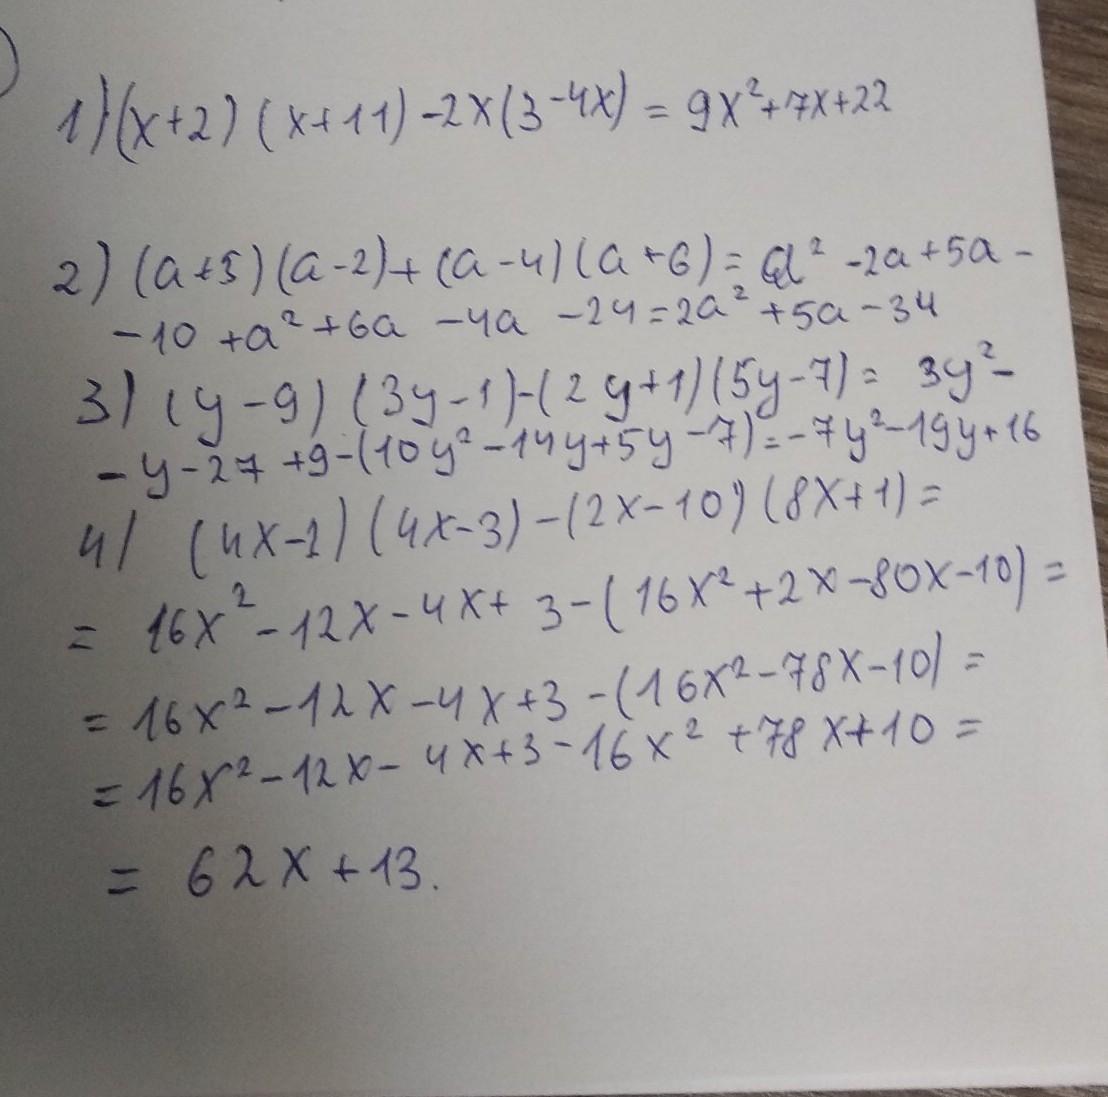 1) (x+2) (x+11) -2x(3-4x) = 9x²+7x+22
2) (a+5)(a-2)+(a-4)(a+6)= a² -2a+5a -
-10 +a²+6a -4a -24=2a² +5a-34
3) (y-9) (3y-1)-(2y+1)(5y-7)= 3y²-
-y-27 +9-(10y²-14y+5y-7)=-7y²-19y+16
4) (4x-1) (4x-3)-(2x-10) (8x+1) =
= 16x²-12x-4x+ 3-(16x²+2x-80x-10) =
= 16x²-12x-4x+3 -(16x²-78x-10) =
= 16x²-12x- 4x+3-16x² +78x+10 =
= 62x+13.